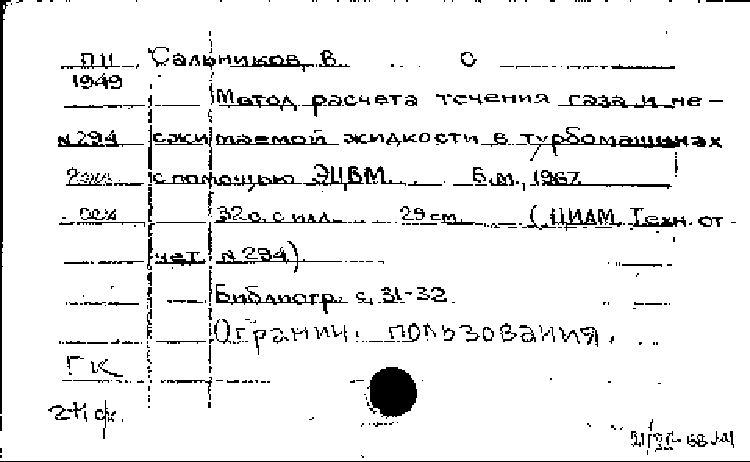 ПII Сальников, В. С
1949
Метод расчета течения газа и не-
N294 сжимаемой жидкости в турбомашинах
с помощью ЭЦВМ. Б.М., 1967.
32 с. с илл. 29 см. (ЦИАМ. Техн. от-
чет N 294).
Библиогр. с. 31-32
Огранич. пользования.
ГК